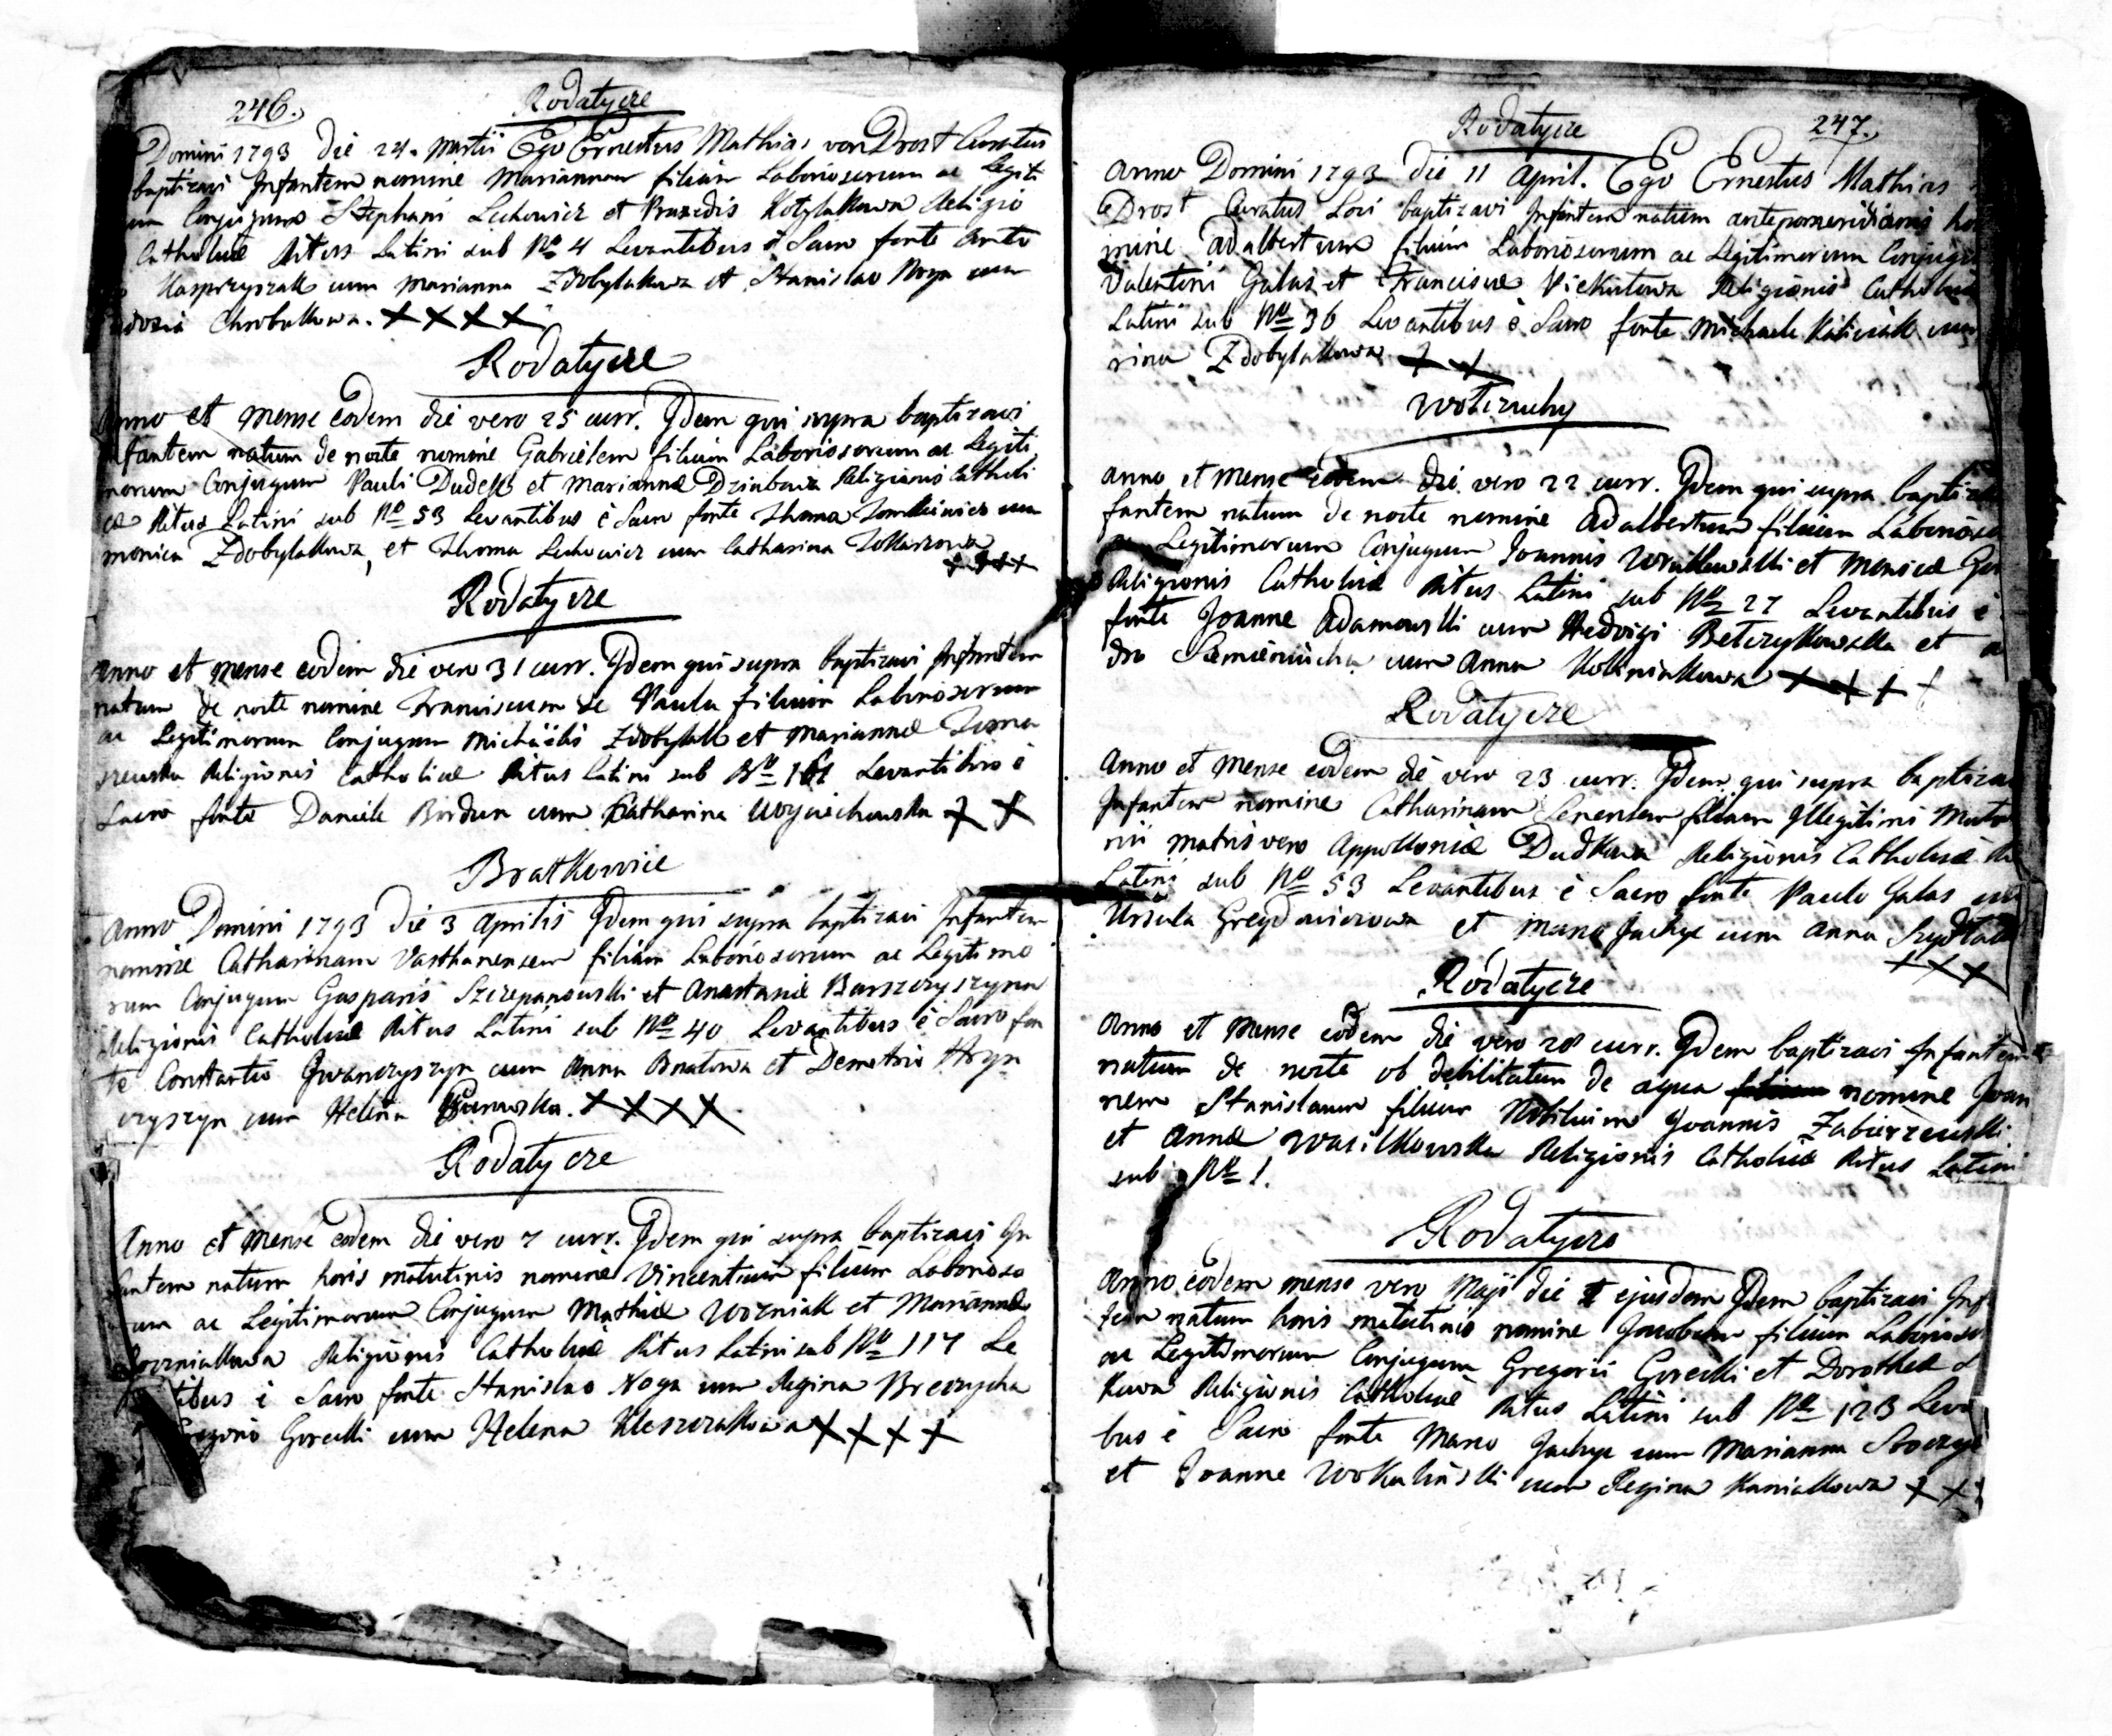 246.
Rodatycze
Domini 1793 die 24. Martii Ego Ernestus Mathias von Drost Curatus
baptizavi Infantem nomine Mariannam filiam Laboriosorum ac Legiti
um Conjugum Stephani Lechowicz et Praxedis Kotylakowa Religio
Catholicæ Ritus Latini sub No 4 Levantibus è Sacro fonte Anto
Kasprzyszak cum Marianna Zdobylakowa et Stanislao Noga cum
Chrobakowa. XXXX
Rodatycze
Anno et Mense eodem die vero 25 curr. Idem qui supra baptizavi
Infantem natum de nocte nomine Gabrielem filium Laboriosorum ac Legiti
morum Conjugum Pauli Dudek et Mariannæ Religionis Catholi
cæ Ritus Latini sub No 53 Levantibus è Sacro fonte Thoma cum
Monica Zdobylakowa, et Thoma Lechowicz cum Catharina
XXXX
Rodatycze
Anno et Mense eodem die vero 31 curr. Idem qui supra baptizavi Infantem
natum de nocte nomine Franciscum de Paula filium Laboriosorum
ac Legitimorum Conjugum Michaelis Zdobylak et Mariannæ Toma
szewska Religionis Catholicæ Ritus Latini sub No Levantibus è
Sacro fonte Daniele Bordun cum Catharina Woyciechowska XX
Bratkowice
Anno Domini 1793 die 3 Aprilis Idem qui supra baptizavi Infantem
nomine Catharinam filiam Laboriosorum ac Legitimo
rum Conjugum Gasparis Szczepanowski et Anastasiæ Barszczyszyna
Religionis Catholicæ Ritus Latini sub No 40 Levantibus è Sacro fon
te Constantio Iwanczyszyn cum Anna Bratowa et Demetrio Hryn
czyszyn cum Helena XXXX
Rodatycze
Anno et Mense eodem die vero 7 curr. Idem qui supra baptizavi In
fantem natum horis matutinis nomine Vincentium filium Laborioso
rum ac Legitimorum Conjugum Mathiæ Wozniak et Mariannæ
Religionis Catholicæ Ritus Latini sub No 117 Le
vantibus è Sacro fonte Stanislao Noga cum Regina
Gregorio Gorecki cum Helena Kleszczakowa XXXX
247.
Rodatycze
Anno Domini 1793 die 11 April. Ego Ernestus Mathias
Drost Curatus Loci baptizavi Infantem natum antepomeridianis ho
mine Adalbertum filium Laboriosorum ac Legitimorum Conjugu
Valentini Galas et Franciscæ Religionis Catholicæ
Latini sub No 36 Levantibus è Sacro fonte Michaele cum
rina Zdobylakowa XX
Anno et Mense eodem die vero 22 curr. Idem qui supra baptiza
fantem natum de nocte nomine Adalbertum filium Laborioso
ac Legitimorum Conjugum Joannis et Monicæ
Religionis Catholicæ Ritus Latini sub No 27 Levantibus è
fonte Joanne Adamowski cum Hedvigi Betczykowska et
dro cum Anna XXXX
Rodatycze
Anno et Mense eodem die vero 23 curr. Idem qui supra baptiza
Infantem nomine Catharinam Senensem filiam Illegitimi Matri
nii matris vero Appolloniæ Dudkowa Religionis Catholicæ
Latini sub No 53 Levantibus è Sacro fonte Paulo Galas cum
Ursula et Marco Jachye cum Anna
XXX
Rodatycze
Anno et Mense eodem die vero 28 curr. Idem baptizavi Infantem
natum de nocte ob debilitatem de aqua nomine Joan
nem Stanislaum filium Nobilium Joannis Zabierzewski
et Annæ Wasilkowska Religionis Catholicæ Ritus Latini
sub No 1.
Rodatycze
Anno eodem mense vero Maji die ejusdem Idem baptizavi Inf
tem natum horis matutinis nomine Jacobum filium Laborioso
ac Legitimorum Conjugum Gregorii Gorecki et Dorotheæ
kowa Religionis Catholicæ Ritus Latini sub No 123 Leva
bus è Sacro fonte Marco Jachye cum Marianna
et Joanne Wokalinski cum Regina Kaniakowa XX